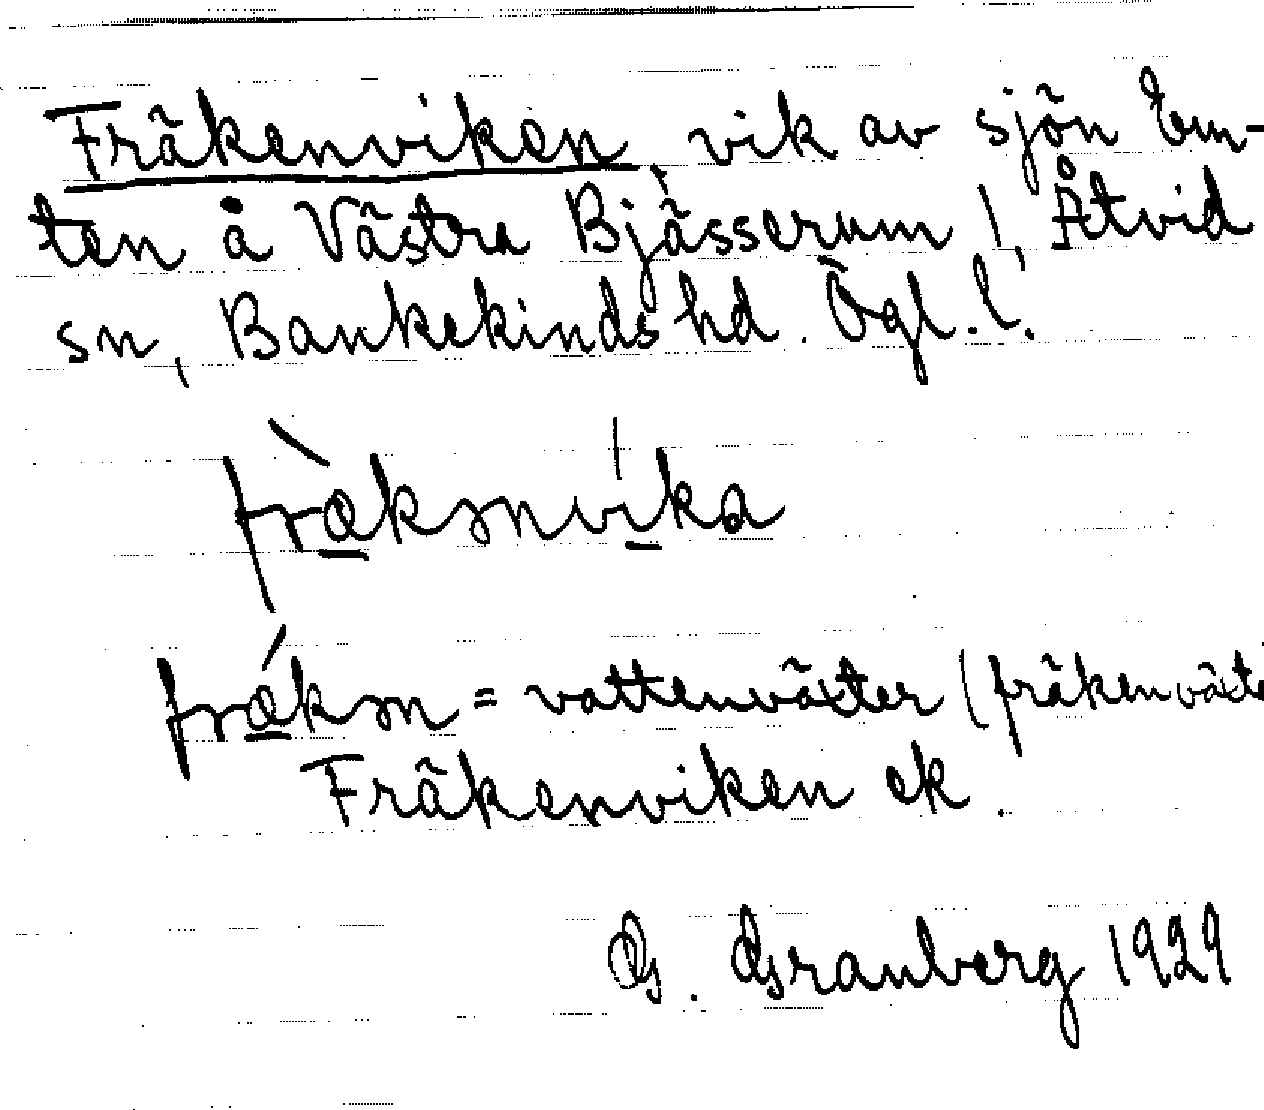 Fräkenviken, vik av sjön Em-
ten å Västra Bjässerum, 1, Åtvid
sn, Bankekinds hd. Ögl. l.
frǽknvíka
frǽkn = vattenväxter (fräkenväxte
Fräkenviken ek.
G. Granberg 1929